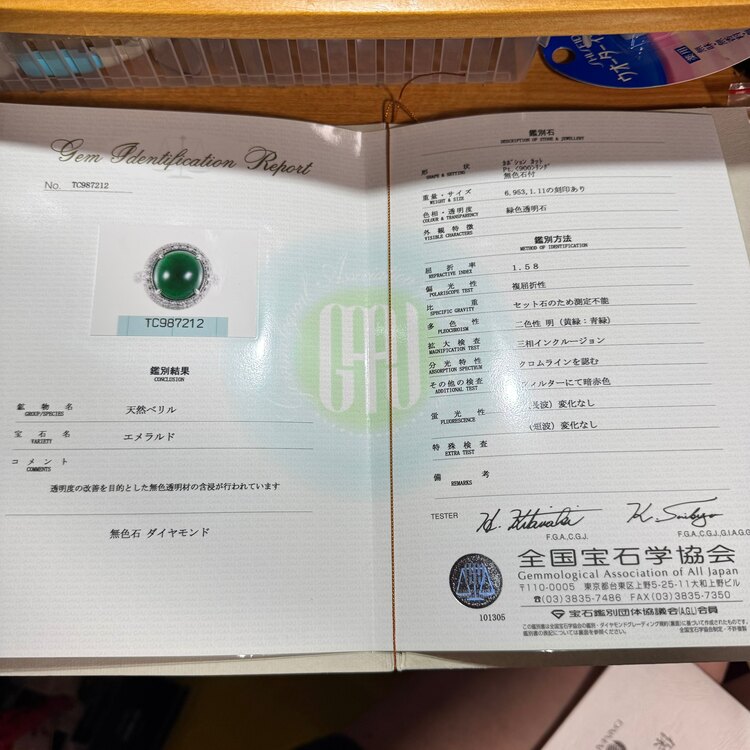 Gem Identification Report
No. TC987212
TC987212
鑑別結果
CONCLUSION
鉱物名 天然ベリル
GROUP/SPECIES
宝石名 エメラルド
VARIETY
コメント
COMMENTS
透明度の改善を目的とした無色透明材の含浸が行われています
無色石 ダイヤモンド
GAAJ
鑑別石
DESCRIPTION OF STONE & JEWELLERY
形状 カボション カット
SHAPE & SETTING Pt.<900>リング
無色石付
重量・サイズ 6.953,1.11の刻印あり
WEIGHT & SIZE
色相・透明度 緑色透明石
COLOUR & TRANSPARENCY
外観特徴
VISIBLE CHARACTERS
鑑別方法
METHOD OF IDENTIFICATION
屈折率 1.58
REFRACTIVE INDEX
偏光性 複屈折性
POLARISCOPE TEST
比重 セット石のため測定不能
SPECIFIC GRAVITY
多色性 二色性 明(黄緑:青緑)
PLEOCHROISM
拡大検査 三相インクルージョン
MAGNIFICATION TEST
分光特性 クロムラインを認む
ABSORPTION SPECTRUM
その他の検査 フィルターにて暗赤色
ADDITIONAL TEST
蛍光性 (長波)変化なし
FLUORESCENCE
(短波)変化なし
特殊検査
EXTRA TEST
備考
REMARKS
TESTER
F.G.A.,C.G.J.
F.G.A.,C.G.J.,G.I.A.G.G.
全国宝石学協会
Gemmological Association of All Japan
〒110-0005 東京都台東区上野5-25-11大和上野ビル
☎(03)3835-7486 FAX(03)3835-7350
宝石鑑別団体協議会(AGL)会員
101305
この鑑別書は全国宝石学協会の鑑別・ダイヤモンドグレーディング規約(裏面)に基づいて作成されたものです。
鑑別書の表記については裏面を参照ください。 全国宝石学協会制定・不許複製